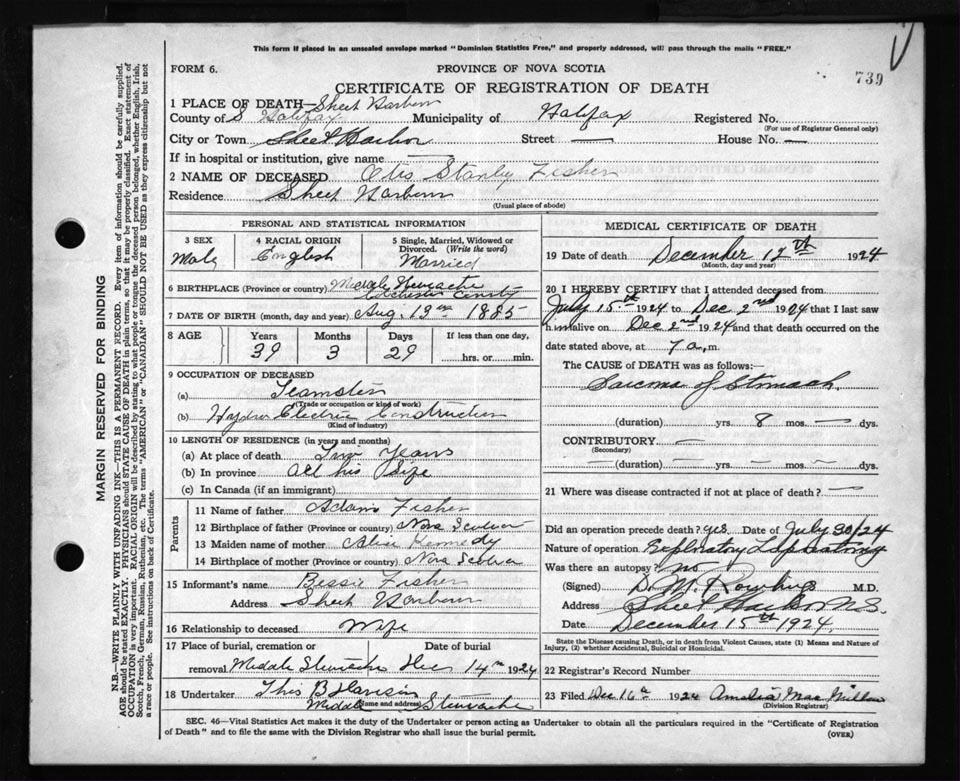 This form if placed in an unsealed envelope marked "Dominion Statistics Free," and properly addressed, will pass through the mails "FREE."
739
FORM 6. PROVINCE OF NOVA SCOTIA
CERTIFICATE OF REGISTRATION OF DEATH
1 PLACE OF DEATH—Sheet Harbour
County of S Halifax Municipality of Halifax Registered No.
(For use of Registrar General only)
City or Town Sheet Harbor Street — House No. —
If in hospital or institution, give name —
2 NAME OF DECEASED Otis Stanley Fisher
Residence Sheet Harbour
(Usual place of abode)
PERSONAL AND STATISTICAL INFORMATION
3 SEX 4 RACIAL ORIGIN 5 Single, Married, Widowed or Divorced. (Write the word)
Male English Married
6 BIRTHPLACE (Province or country) Middle Stewiacke
Colchester County
7 DATE OF BIRTH (month, day and year) Aug. 13th 1885
8 AGE Years Months Days If less than one day,
39 3 29 hrs. or min.
9 OCCUPATION OF DECEASED
(a) Teamster
(Trade or occupation or kind of work)
(b) Hydro Electric Construction
(Kind of industry)
10 LENGTH OF RESIDENCE (in years and months)
(a) At place of death Two Years
(b) In province All his life
(c) In Canada (if an immigrant)
Parents
11 Name of father Adam Fisher
12 Birthplace of father (Province or country) Nova Scotia
13 Maiden name of mother Alice Kennedy
14 Birthplace of mother (Province or country) Nova Scotia
15 Informant's name Bessie Fisher
Address Sheet Harbour
16 Relationship to deceased Wife
17 Place of burial, cremation or Date of burial
removal Middle Stewiacke Dec 14th 1924
18 Undertaker
(Name and address) Middle Stewiacke
MEDICAL CERTIFICATE OF DEATH
19 Date of death December 12th 1924
(Month, day and year)
20 I HEREBY CERTIFY that I attended deceased from
July 15th 1924 to Dec 2nd 1924 that I last saw
him alive on Dec 2nd 1924 and that death occurred on the
date stated above, at 7 a. m.
The CAUSE OF DEATH was as follows:
Sarcoma of Stomach.
(duration) yrs. 8 mos. — dys.
CONTRIBUTORY —
(Secondary)
— (duration) — yrs. — mos. — dys.
21 Where was disease contracted if not at place of death? —
Did an operation precede death? yes. Date of July 30/24
Nature of operation Exploratory Laparotomy
Was there an autopsy? no
(Signed) D. M. Rowlings M.D.
Address Sheet Harbor N.S.
Date December 15th 1924.
State the Disease causing Death, or in death from Violent Causes, state (1) Means and Nature of Injury, (2) whether Accidental, Suicidal or Homicidal.
22 Registrar's Record Number
23 Filed Dec 16th 1924 Amelia MacMillan
(Division Registrar)
SEC. 46—Vital Statistics Act makes it the duty of the Undertaker or person acting as Undertaker to obtain all the particulars required in the "Certificate of Registration
of Death" and to file the same with the Division Registrar who shall issue the burial permit. (OVER)
MARGIN RESERVED FOR BINDING
N.B.—WRITE PLAINLY WITH UNFADING INK—THIS IS A PERMANENT RECORD. Every item of information should be carefully supplied.
AGE should be stated EXACTLY. PHYSICIANS should STATE CAUSE OF DEATH in plain terms, so that it may be properly classified. Exact statement of
OCCUPATION is very important. RACIAL ORIGIN will be described by stating to what people or tongue the deceased person belonged, whether English, Irish,
Scotch, French, German, Russian, Ruthenian, etc. The terms "AMERICAN" or "CANADIAN" SHOULD NOT BE USED as they express citizenship but not
a race or people. See instructions on back of Certificate.